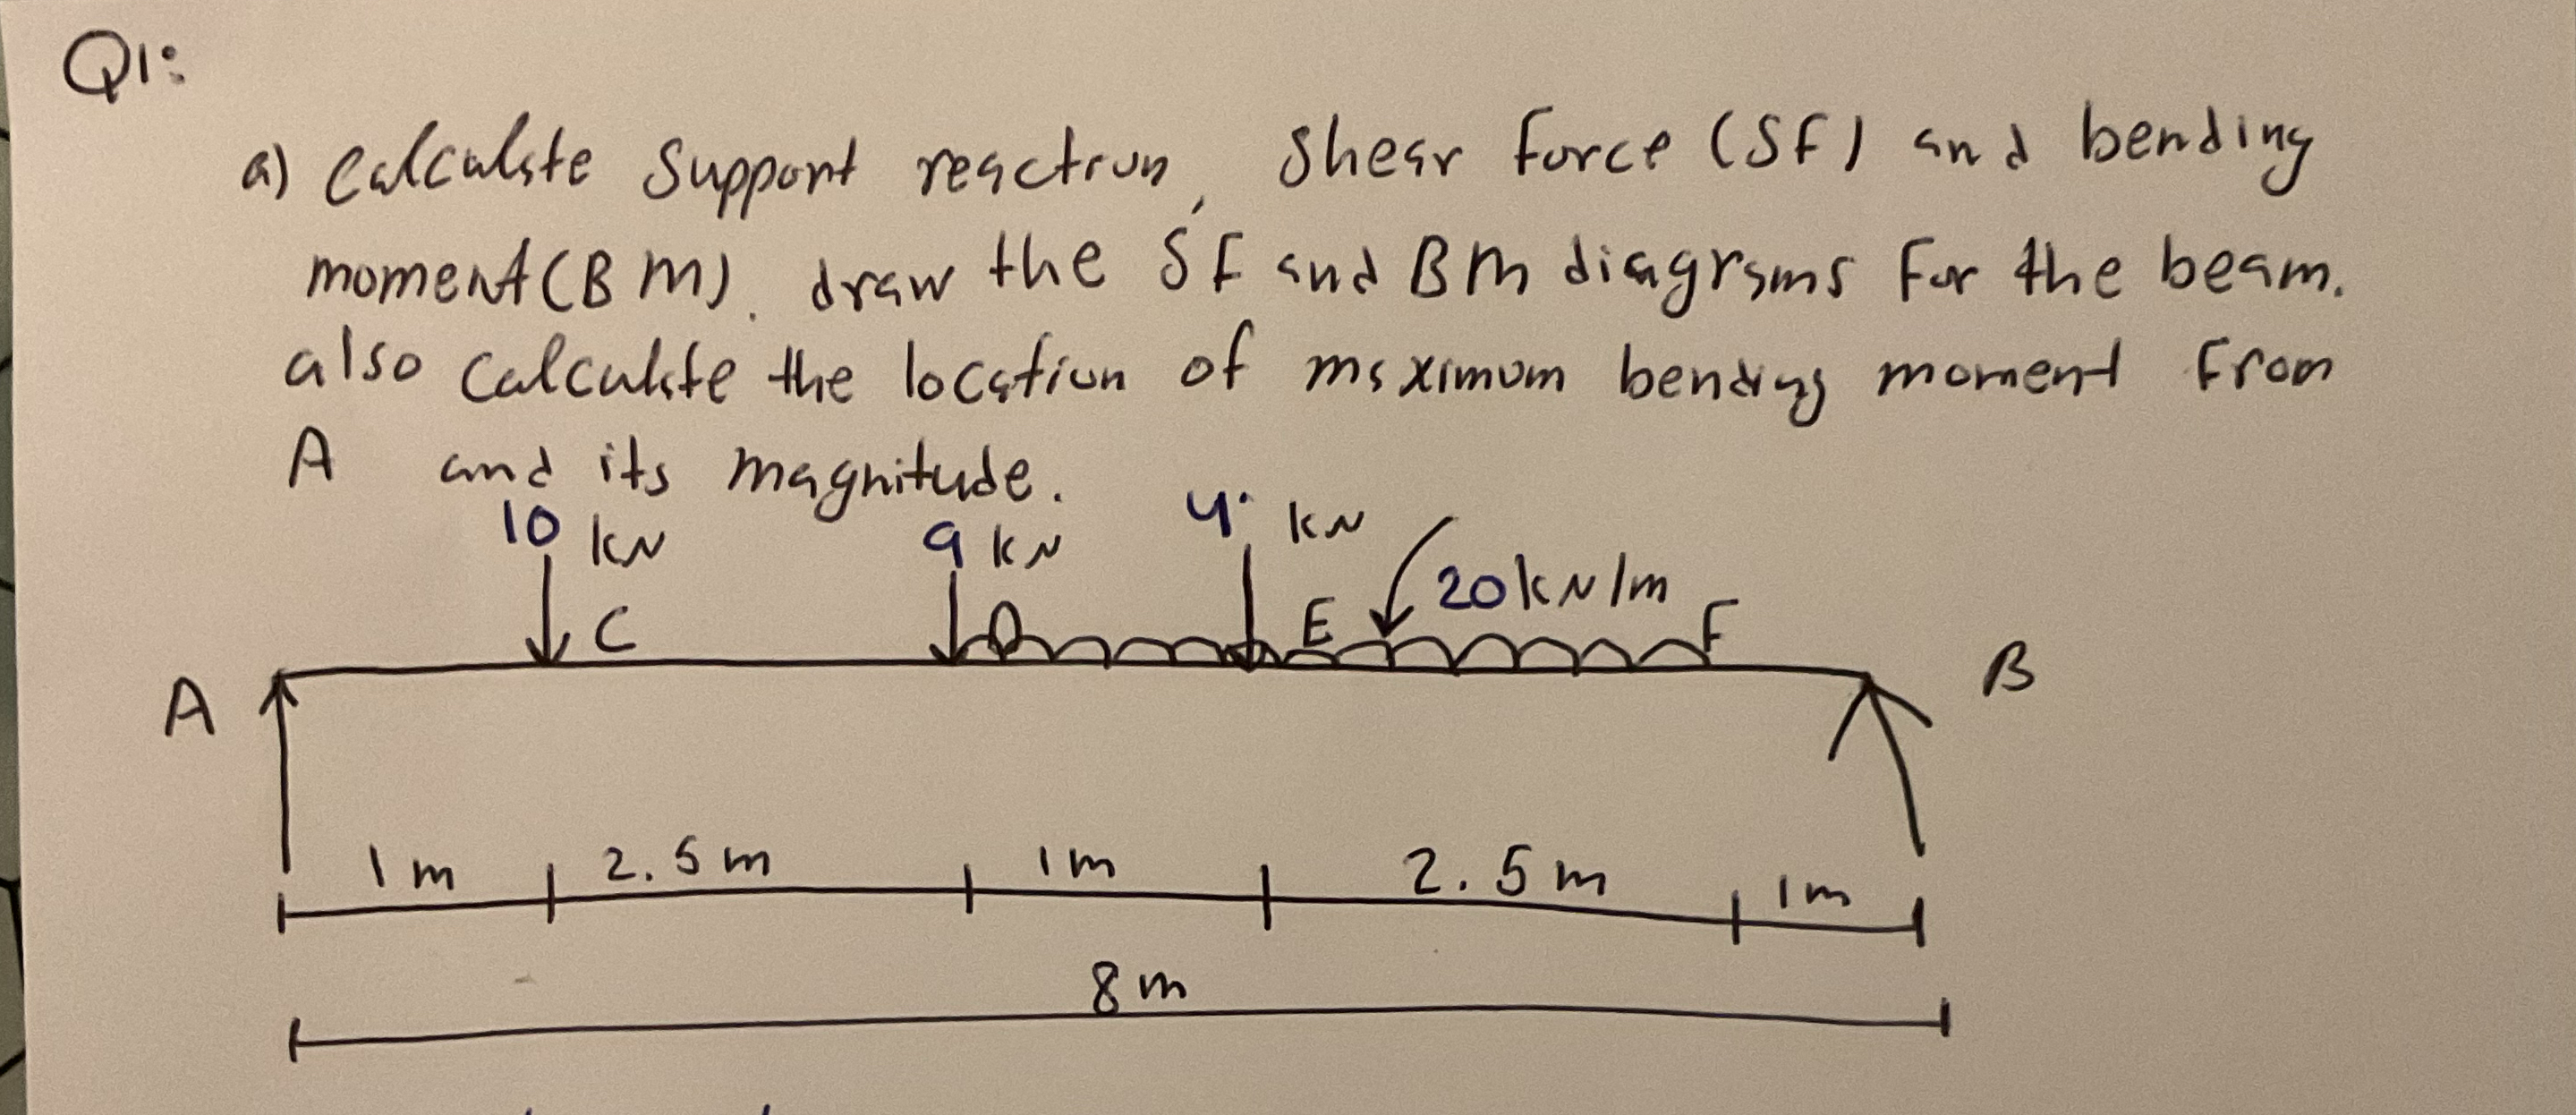 Q1:
a) Calculate Support reaction, Shear Force (SF) and bending
moment (BM). draw the SF and BM diagrams For the beam.
also calculate the location of maximum bending moment From
A and its magnitude.
10 kN 9 kN 4 kN
20 kN/m
C D E F
A B
1m 2.5m 1m 2.5m 1m
8m